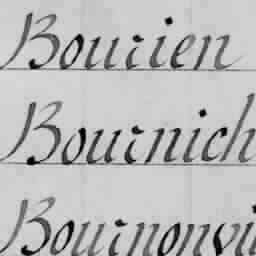 Bourien
Bournich
Bournonvi